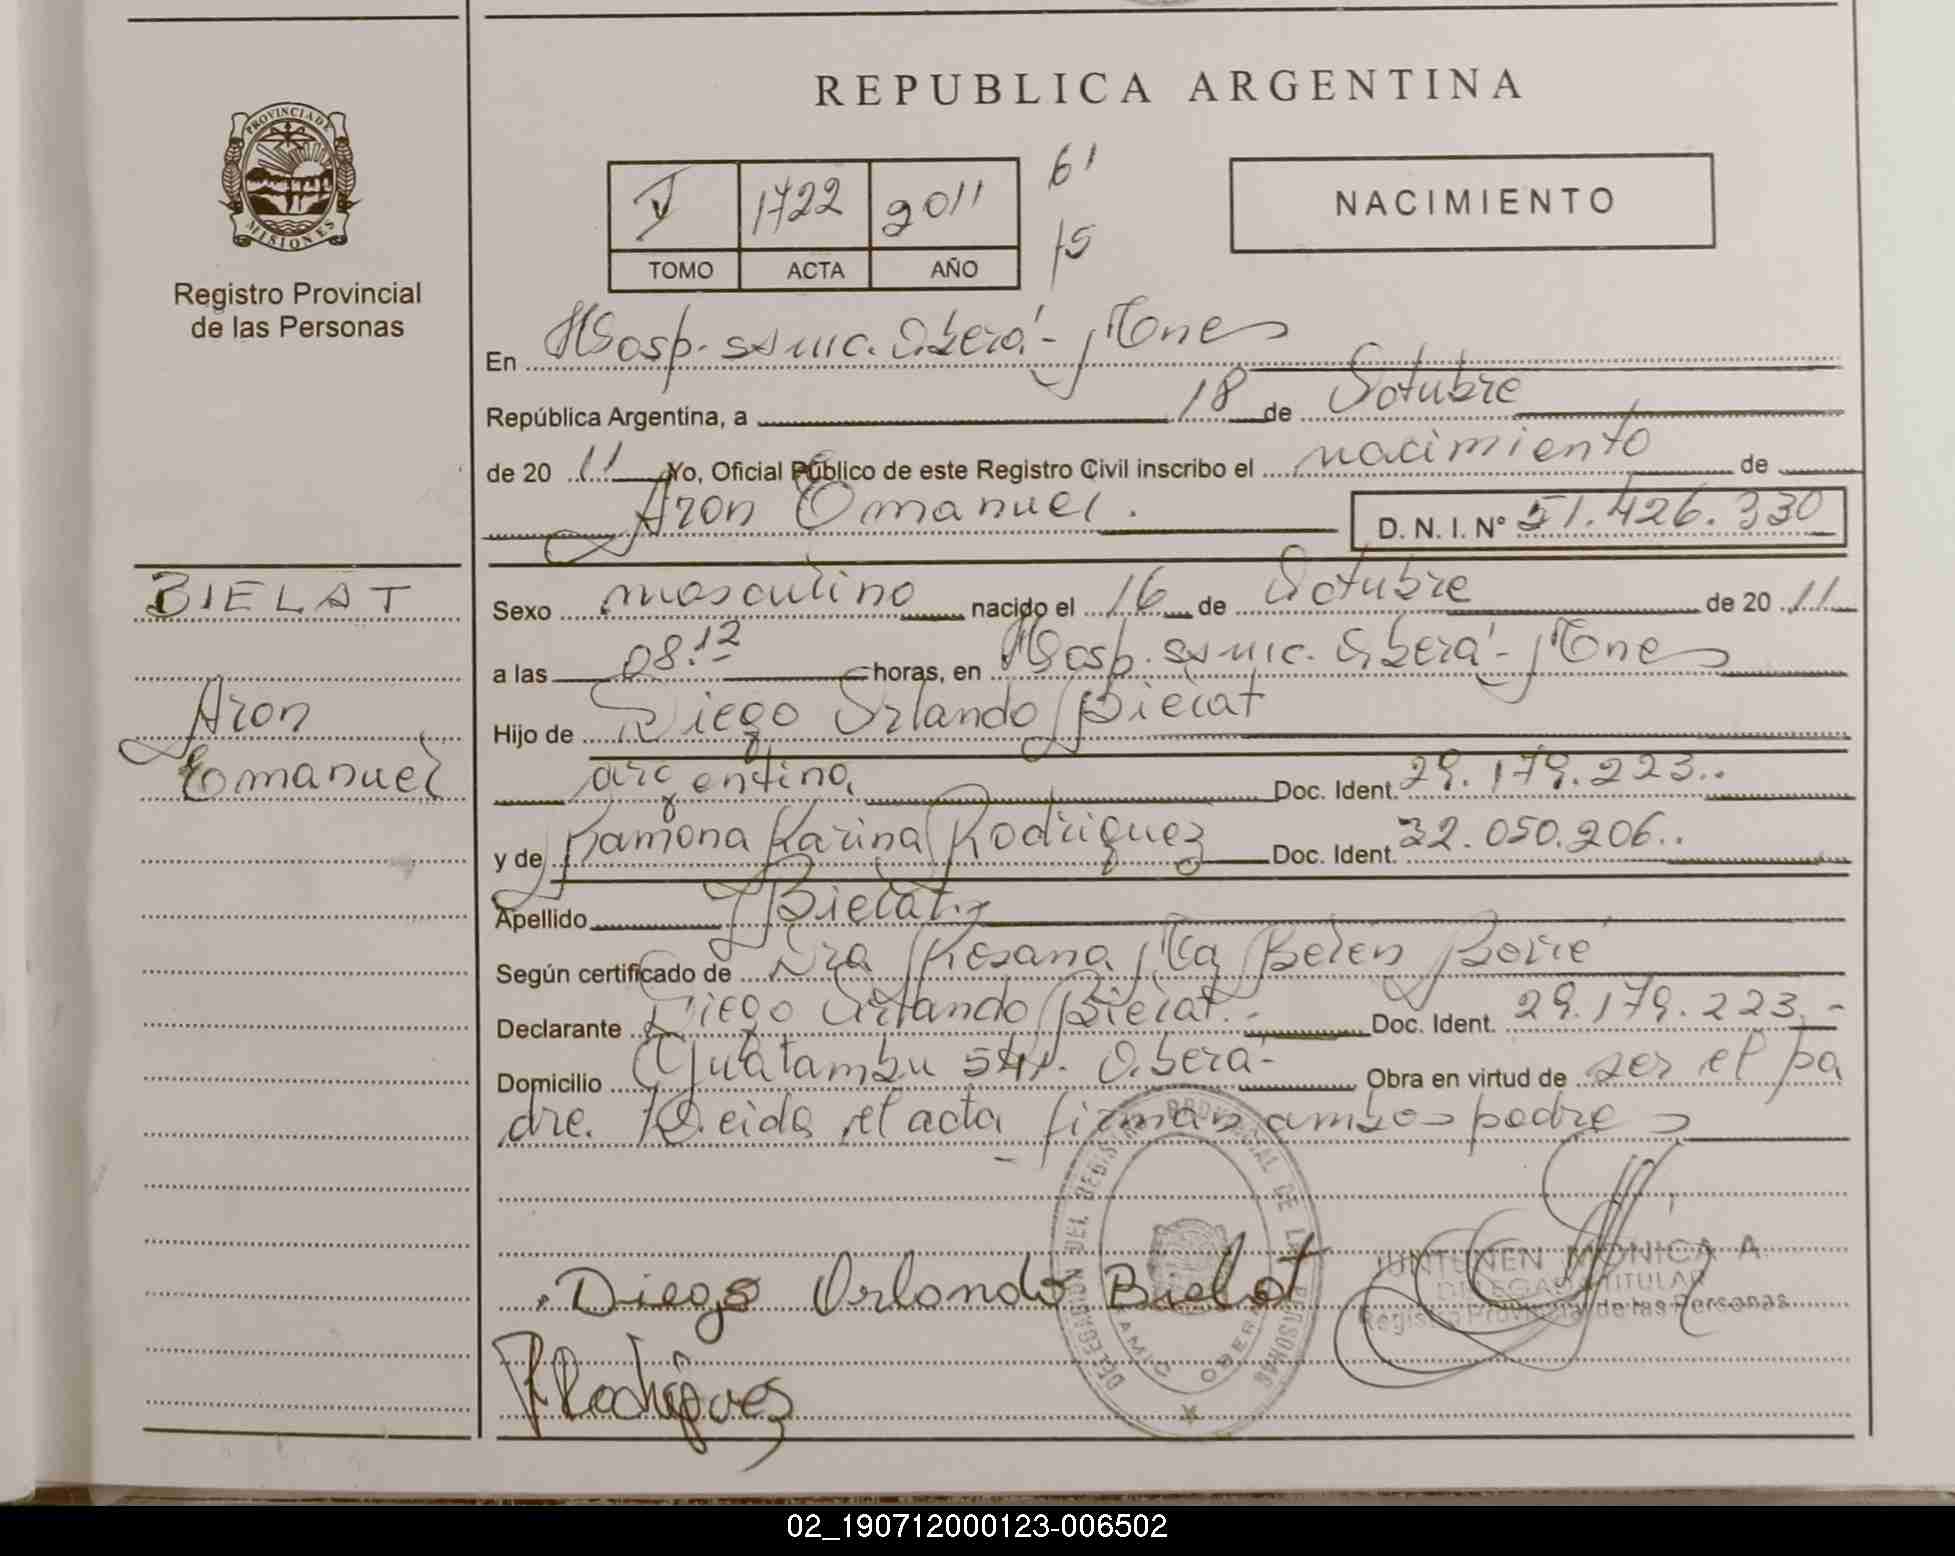 REPUBLICA ARGENTINA
PROVINCIA DE
MISIONES
Registro Provincial
de las Personas
V 1722 2011
TOMO ACTA AÑO
61
15
NACIMIENTO
En Hosp. ssmic. Oberá - Mones
República Argentina, a 18 de Octubre
de 20 11 Yo, Oficial Público de este Registro Civil inscribo el nacimiento de
Aron Emanuel.
D. N. I. N° 51.426.330
BIELAT
Aron
Emanuel
Sexo masculino nacido el 16 de Octubre de 20 11
a las 08.12 horas, en Hosp. ssmic. Oberá - Mones
Hijo de Diego Orlando Bielat
argentina Doc. Ident. 29.179.223..
y de Ramona Karina Rodriguez Doc. Ident. 32.050.206..
Apellido Bielat.
Según certificado de Dra Rosana Ma Belen Boiré
Declarante Diego Orlando Bielat. Doc. Ident. 29.179.223.-
Domicilio Guatambu Oberá - Obra en virtud de ser el pa
dre. Leida el acta firman ambos padres
DELEGACION DEL REGISTRO PROVINCIAL DE LAS PERSONAS
OBERA
JUNTUNEN MONICA A.
DELEGADA TITULAR
Registro Provincial de las Personas
Diego Orlando Bielat
R Rodriguez
02_190712000123-006502